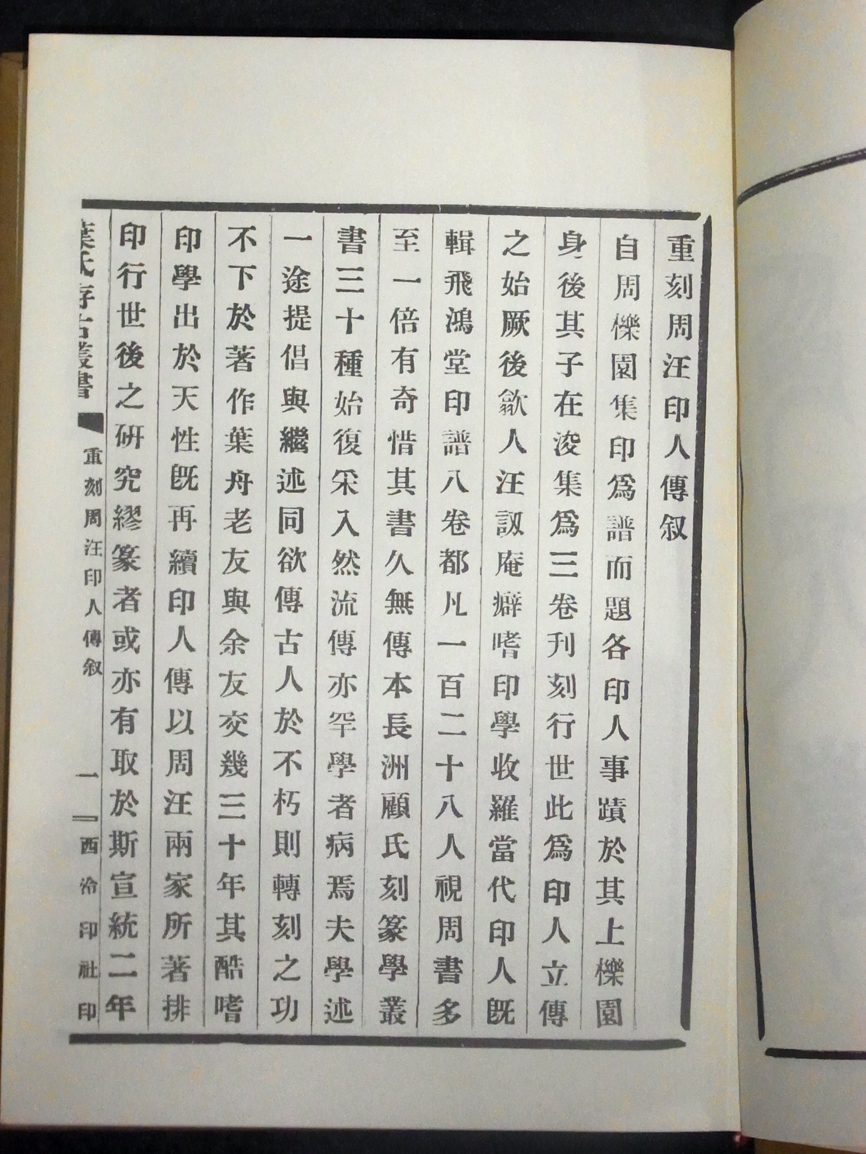 重刻周汪印人傳叙
自周櫟園集印爲譜而題各印人事蹟於其上櫟園
身後其子在浚集爲三卷刊刻行世此爲印人立傳
之始厥後歙人汪訒庵癖嗜印學收羅當代印人旣
輯飛鴻堂印譜八卷都凡一百二十八人視周書多
至一倍有奇惜其書久無傳本長洲顧氏刻篆學叢
書三十種始復采入然流傳亦罕學者病焉夫學述
一途提倡與繼述同欲傳古人於不朽則轉刻之功
不下於著作葉舟老友與余友交幾三十年其酷嗜
印學出於天性旣再續印人傳以周汪兩家所著排
印行世後之研究繆篆者或亦有取於斯宣統二年
葉氏存古叢書
重刻周汪印人傳叙
一
西泠印社印